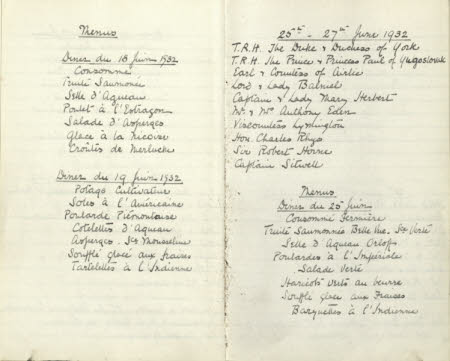 Menus
Diner du 18 Juin 1932
Consommé
Truite Saumonée
Selle d'Agneau
Poulet à l'Estragon
Salade d'Asperges
Glace à la
Croûtes de Merluche
Diner du 19 Juin 1932
Potage Cultivateur
Soles à l'Américaine
Poularde Piémontaise
Cotelettes d'Agneau
Asperges. Sce Mousseline
Soufflé glacé aux fraises
Tartelettes à l'Indienne
25th - 27th June 1932
T.R.H. The Duke & Duchess of York
T.R.H. The Prince & Princess Paul of Yugoslovak
Earl & Countess of Airlie
Lord & Lady Balniel
Captain & Lady Mary Herbert
Mr & Mrs Anthony Eden
Viscountess Lymington
Hon. Charles Rhys
Sir Robert Horne
Captain Sitwell
Menus
Diner du 25 Juin
Consommé Fermière
Truite Saumonée Belle Vue. Sce Verte
Selle d'Agneau Orloff
Poulardes à l'Impériale
Salade Verte
Haricots verts au beurre
Soufflé glacé aux Fraises
Barquettes à l'Indienne